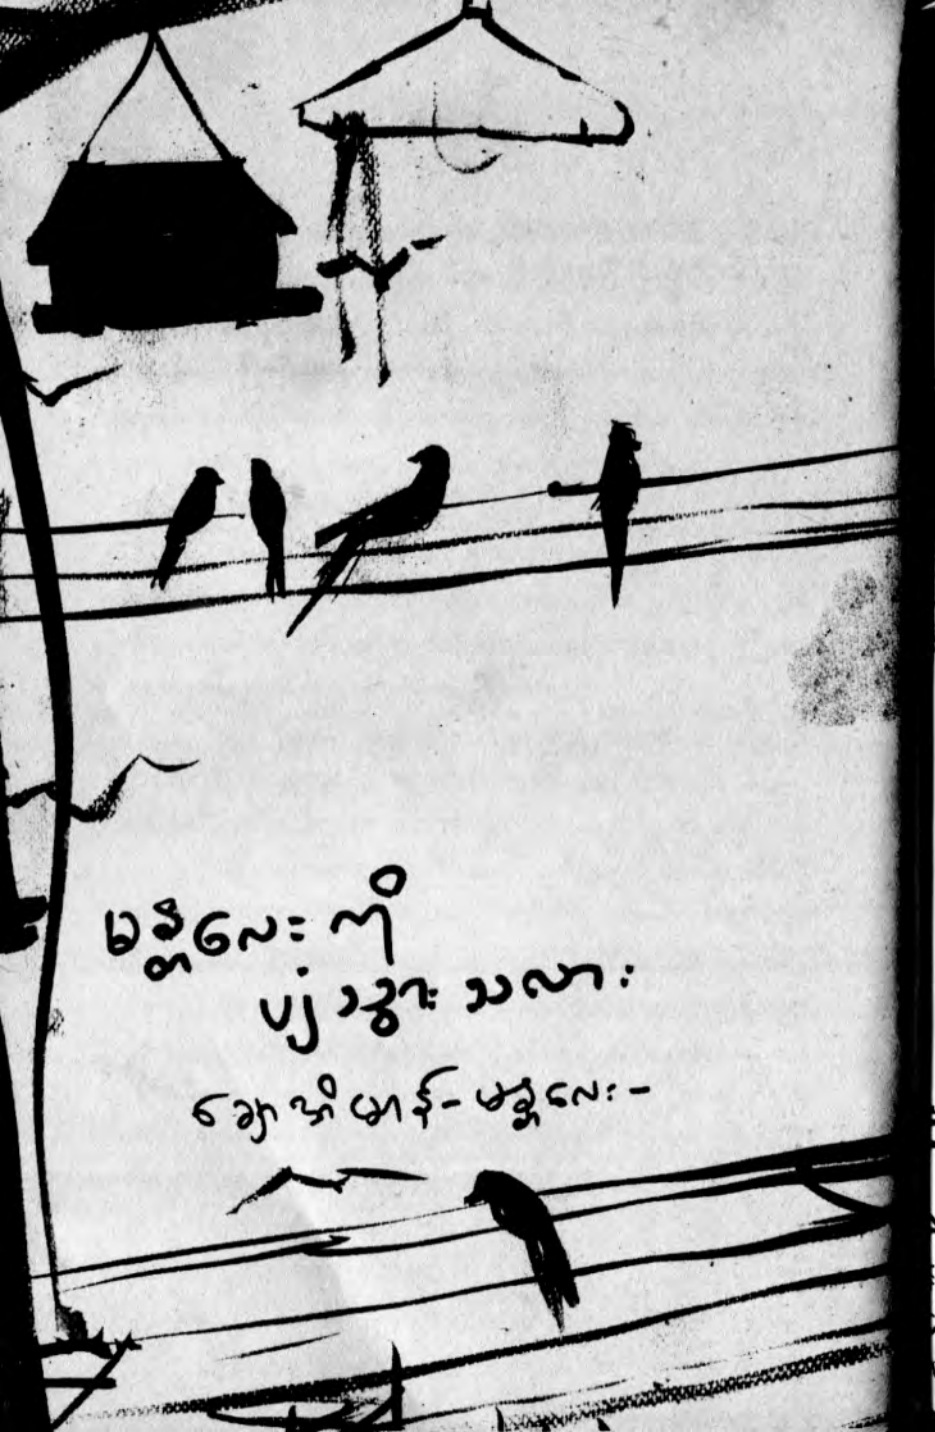 မန္တလေးကို
ပျံသွားသလား
ချောအိမာန်-မန္တလေး-